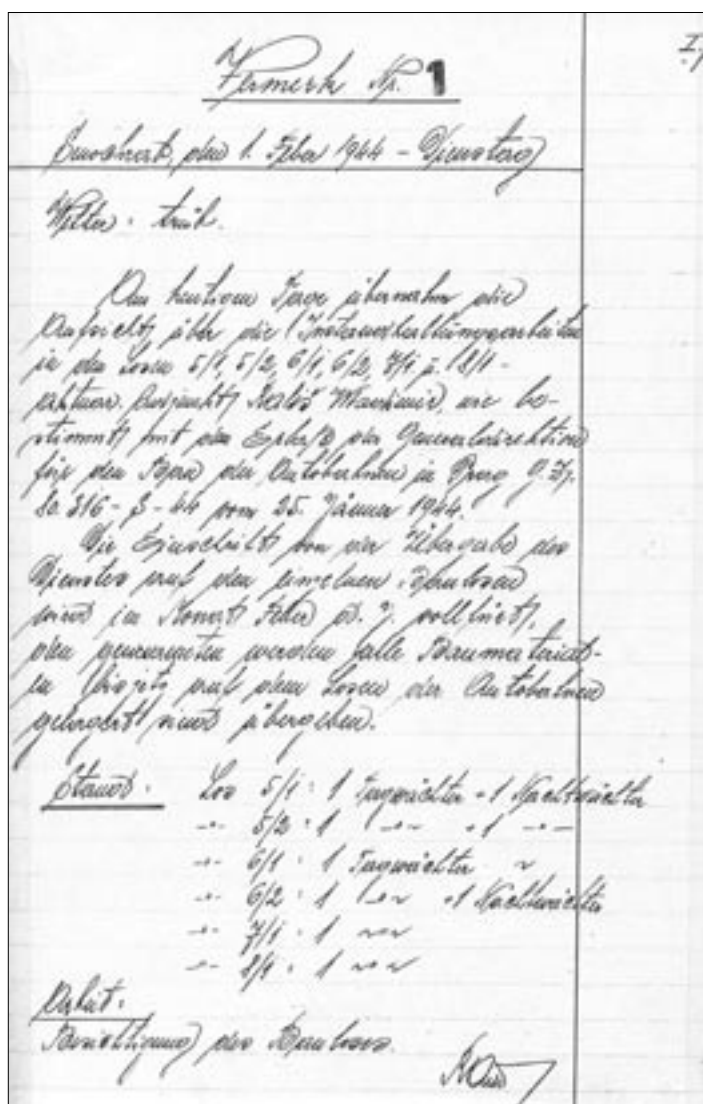 Vermerk Nr. 1
I.
den 1. Feber 1944 - Dienstag
Wetter: trüb.
Am heutigen Tage übernahm die
Aufsicht über die Instandhaltungsarbeiten
in den Losen 5/1, 5/2, 6/1, 6/2, 7/1 u. 8/1 -
Adjunkt wie be-
stimmt mit dem Erlaß der Generaldirektion
für den Bau der Autobahnen in Prag G. Zj.
316 - 3 - 44 vom 25. Jänner 1944.
Die von der Übergabe des
Dienstes auf den einzelnen Baulosen
wird im Monat Feber d. J. vollführt,
dem genannten werden alle Baumateriali-
en auf den Losen der Autobahnen
gelagert sind übergeben.
Stand: Los 5/1: 1 Tagwächter + 1 Nachtwächter
-"- 5/2: 1 -"- + 1 -"-
-"- 6/1: 1 Tagwächter
-"- 6/2: 1 -"- + 1 Nachtwächter
-"- 7/1: 1 -"-
-"- 8/1: 1 -"-
Arbeit:
Besichtigung des Bauloses.